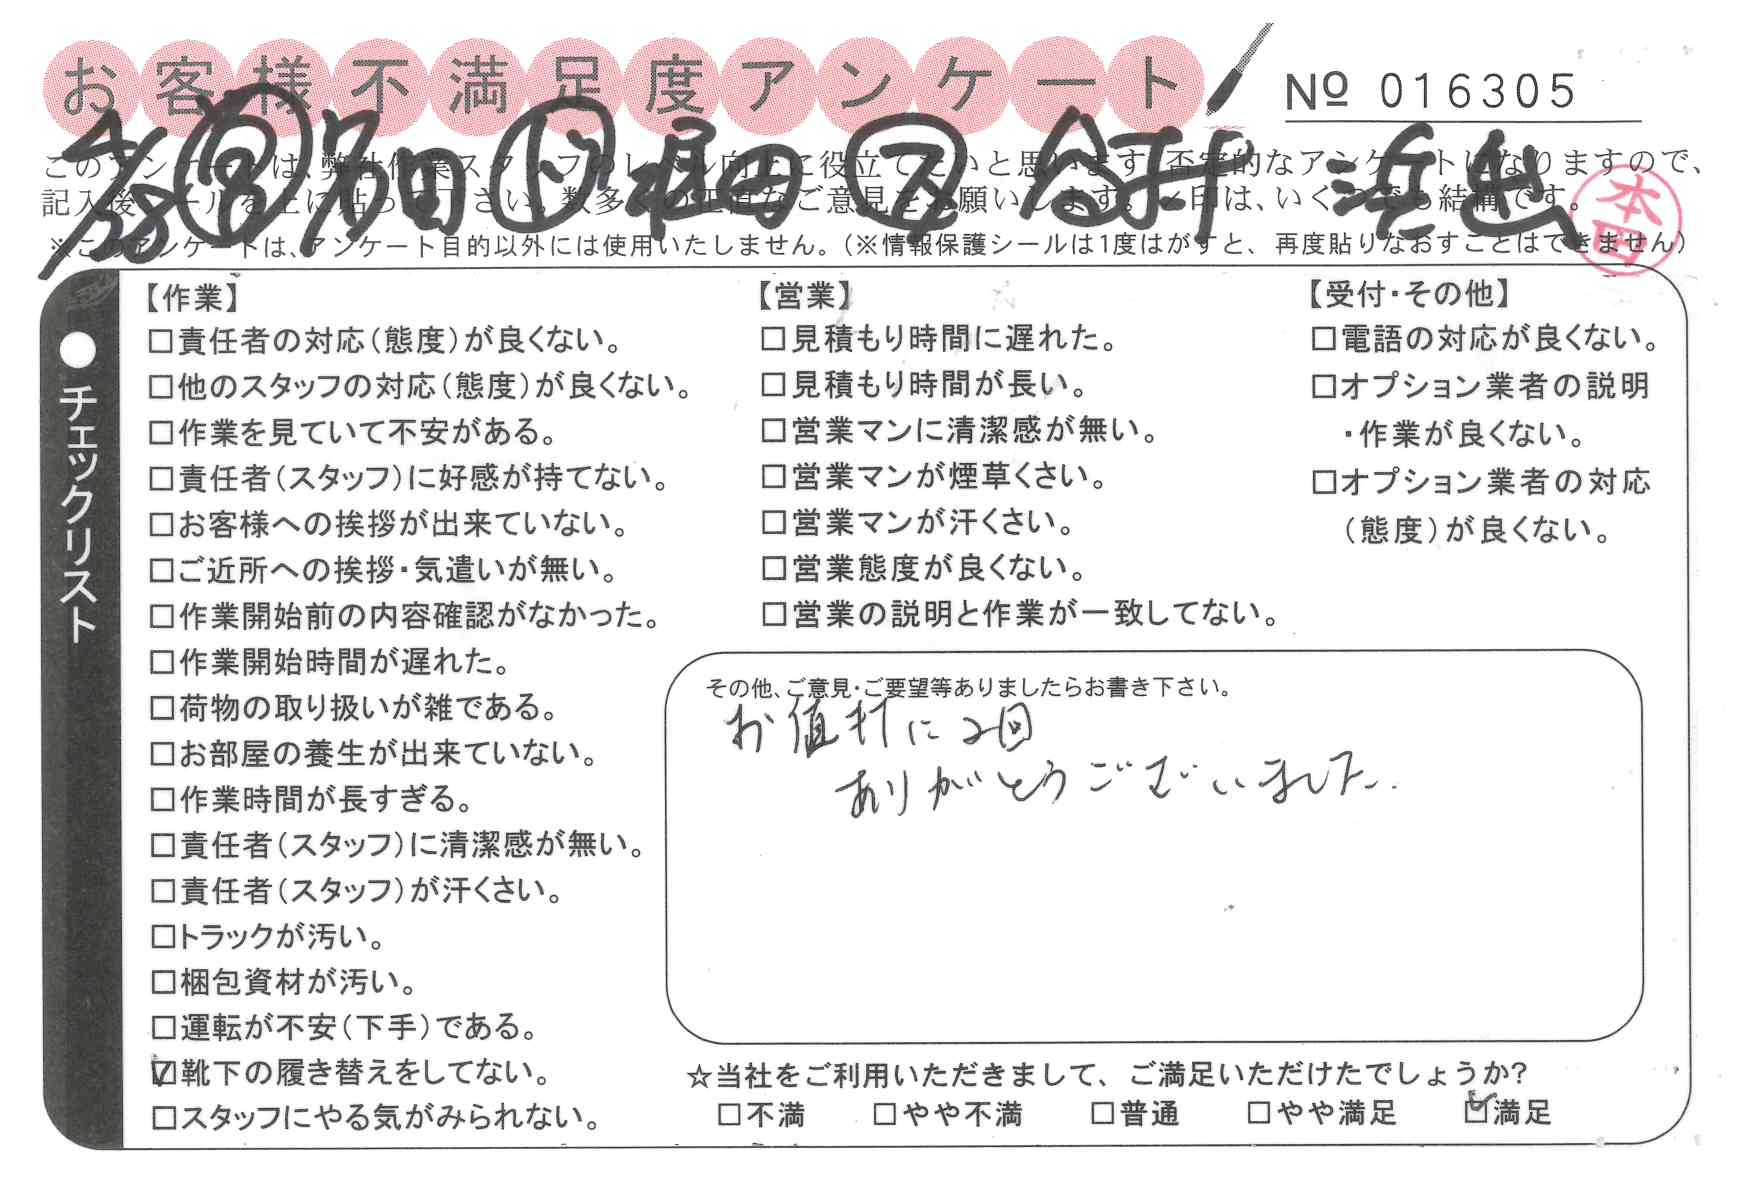 お客様不満足度アンケート
Nº 016305
4/28
このアンケートは、弊社作業スタッフのレベル向上に役立てたいと思います。否定的なアンケートになりますので、
記入後シールを上に貼って下さい。数多くの正直なご意見をお願いします。レ印は、いくつでも結構です。
本田
※このアンケートは、アンケート目的以外には使用いたしません。(※情報保護シールは1度はがすと、再度貼りなおすことはできません)
●チェックリスト
【作業】
□責任者の対応(態度)が良くない。
□他のスタッフの対応(態度)が良くない。
□作業を見ていて不安がある。
□責任者(スタッフ)に好感が持てない。
□お客様への挨拶が出来ていない。
□ご近所への挨拶・気遣いが無い。
□作業開始前の内容確認がなかった。
□作業開始時間が遅れた。
□荷物の取り扱いが雑である。
□お部屋の養生が出来ていない。
□作業時間が長すぎる。
□責任者(スタッフ)に清潔感が無い。
□責任者(スタッフ)が汗くさい。
□トラックが汚い。
□梱包資材が汚い。
□運転が不安(下手)である。
☑靴下の履き替えをしてない。
□スタッフにやる気がみられない。
【営業】
□見積もり時間に遅れた。
□見積もり時間が長い。
□営業マンに清潔感が無い。
□営業マンが煙草くさい。
□営業マンが汗くさい。
□営業態度が良くない。
□営業の説明と作業が一致してない。
【受付・その他】
□電話の対応が良くない。
□オプション業者の説明
・作業が良くない。
□オプション業者の対応
(態度)が良くない。
その他、ご意見・ご要望等ありましたらお書き下さい。
お値打に2回
ありがとうございました。
☆当社をご利用いただきまして、ご満足いただけたでしょうか?
□不満 □やや不満 □普通 □やや満足 ☑満足